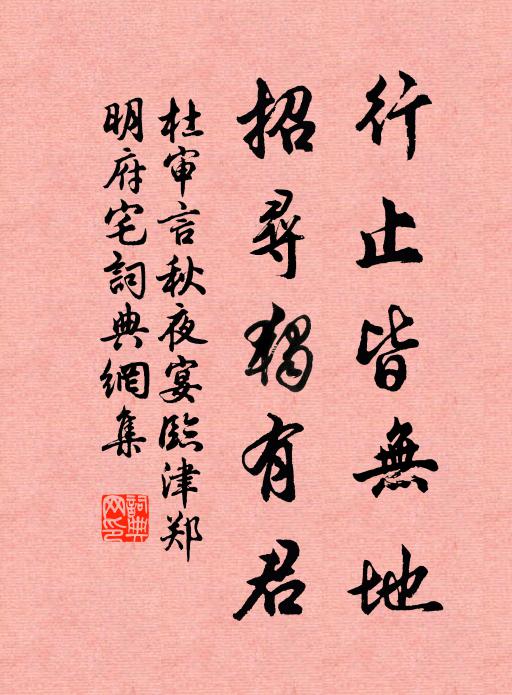 行止皆無地
招尋獨有君
杜审言秋夜宴臨津郑
明府宅詞典網集
詞典网印